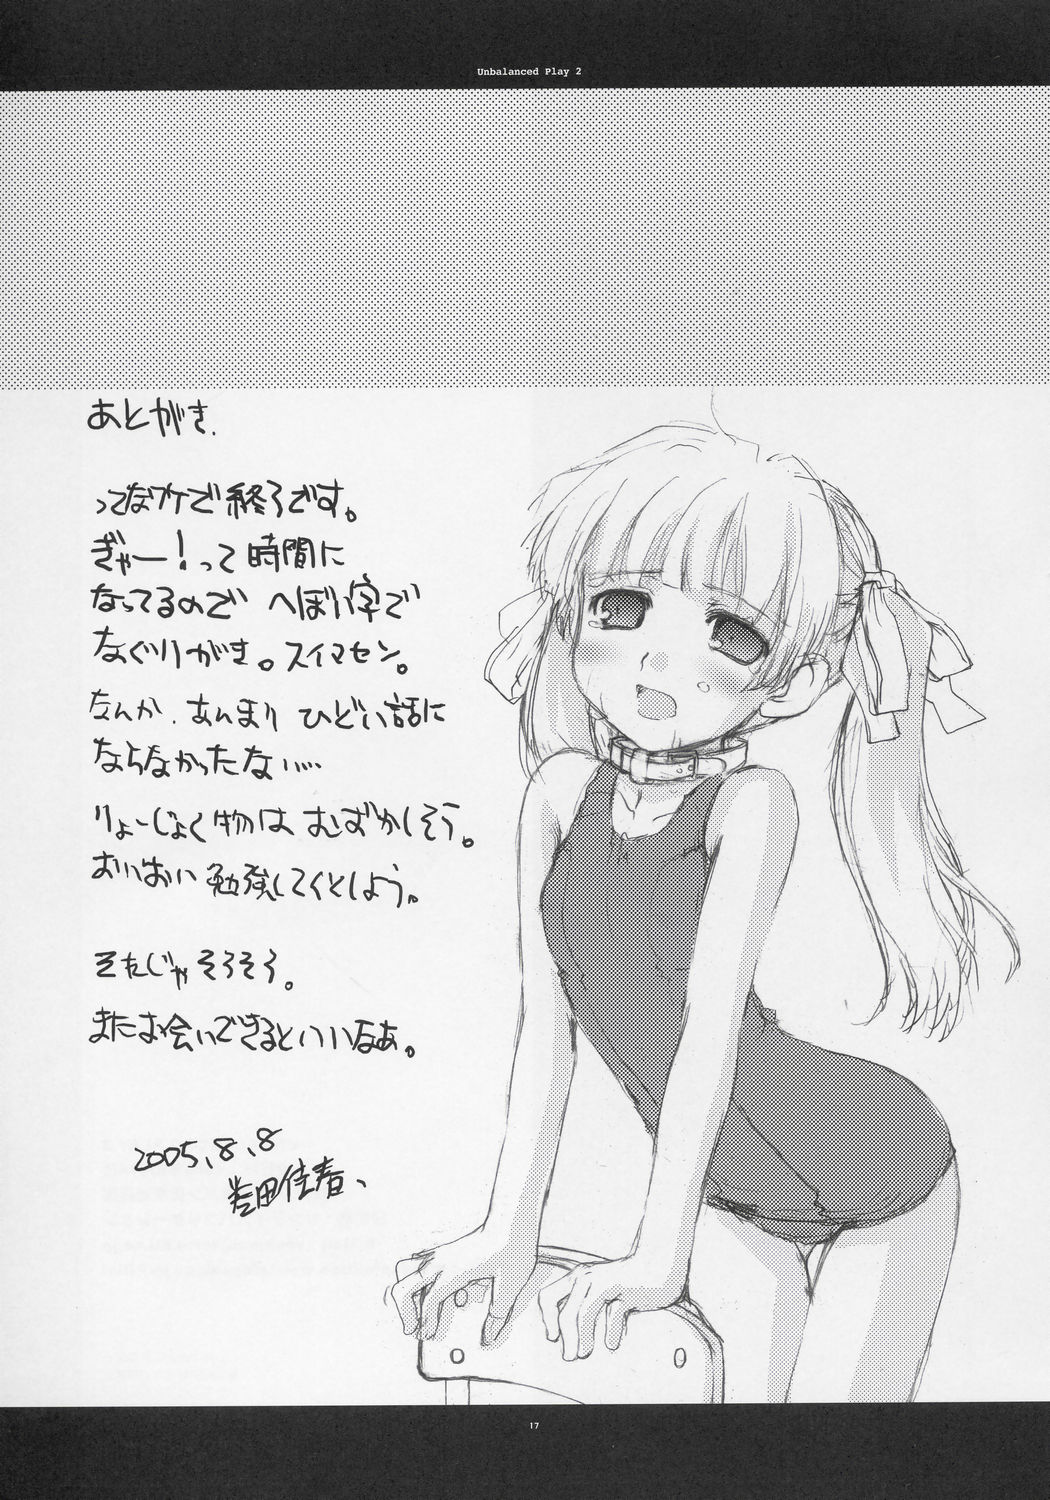 Unbalanced Play 2
あとがき.
ってなワケで終了です。
ぎゃー!って時間に
なってるので へぼい字で
なぐりがき。スイマセン。
なんか、あんまり ひどい話に
ならなかったない…
りょーじょく物は むずかしそう。
おいおい 勉強してくとしよう。
そんじゃそろそろ。
またお会いできるといいなあ。
2005.8.8
17